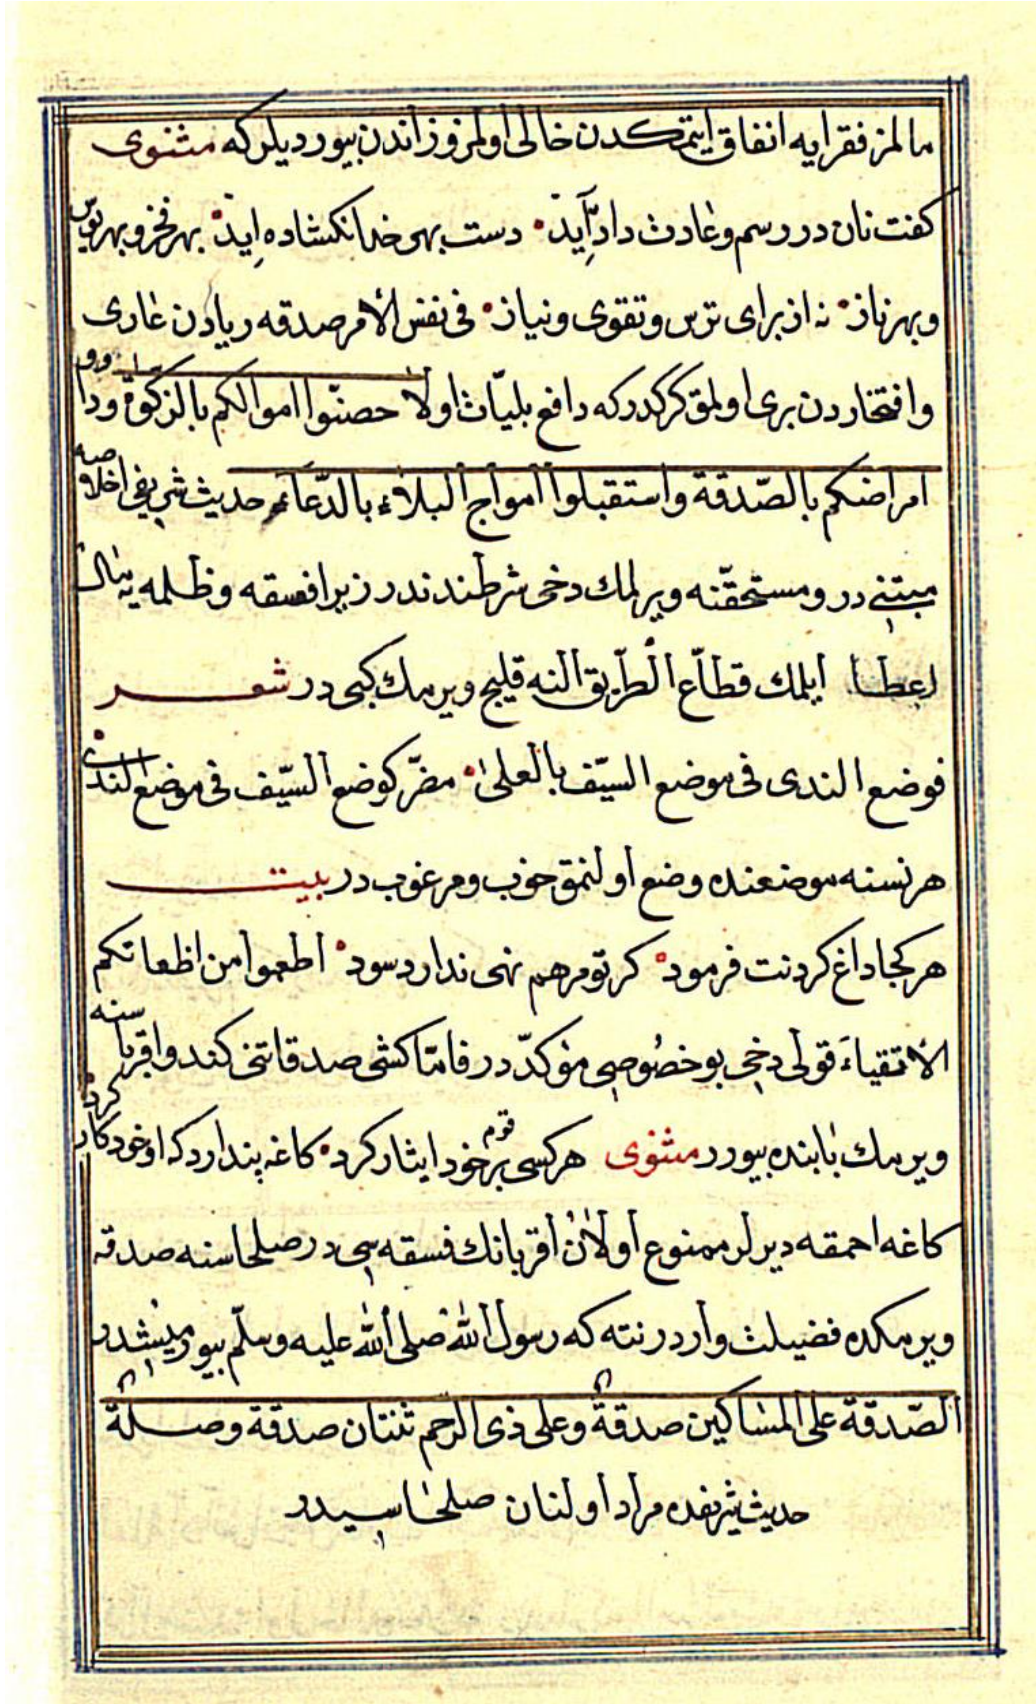 مالمز فقرايه انفاق ايتمكدن خالی اولمز وزاندن بيورديلر كه مثنوی
كفت نان در رسم وعادت داده‌ايد • دست بهر خدا نكشاده ايد • بهر فخر وبهر بوس
وبهر ناز • نه از برای ترس وتقوی ونياز • فی نفس الأمر صدقه ريادن عاری
وافتخاردن بری اولمق كركدر كه دافع بليّات اولا حصنّوا اموالكم بالزكوة وداووا
امراضكم بالصّدقة واستقبلوا امواج البلاء بالدّعاء حديث شريفی اخلاصه
مبتنی در ومستحقّنه ويرلمك دخی شرطندندر زيرا فسقه وظلمه يه مال
اعطا ايلمك قطّاع الطّريق النه قليج ويرمك كبی در شعر
فوضع الندی فی موضع السيّف بالعلیٰ • مضرّ كوضع السّيف فی موضع الندی
هر نسنه موضعنده وضع اولنمق خوب ومرغوب در بيت
هر كجا داغ كردنت فرمود • كر تو مرهم نهی ندارد سود • اطعموا من اظعاتكم
الأتقياء قولی دخی بو خصوصی مؤكدّ در فامّا كشی صدقاتنی كندو اقرباسنه
ويرمك بابنده بيورر مثنوی هر كسی بر قوم خود ايثار كرد • كاغه پندارد كه او خود كار كرد
كاغه احمقه ديرلر ممنوع اولان اقربانك فسقه سی در صلحاسنه صدقه
ويرمكده فضيلت واردر نته كه رسول الله صلی الله عليه وسلّم بيورمشدر
الصّدقة علی المساكين صدقة وعلی ذی الرحم ثنتان صدقة وصلة
حديث شريفده مراد اولنان صلحاسيدر